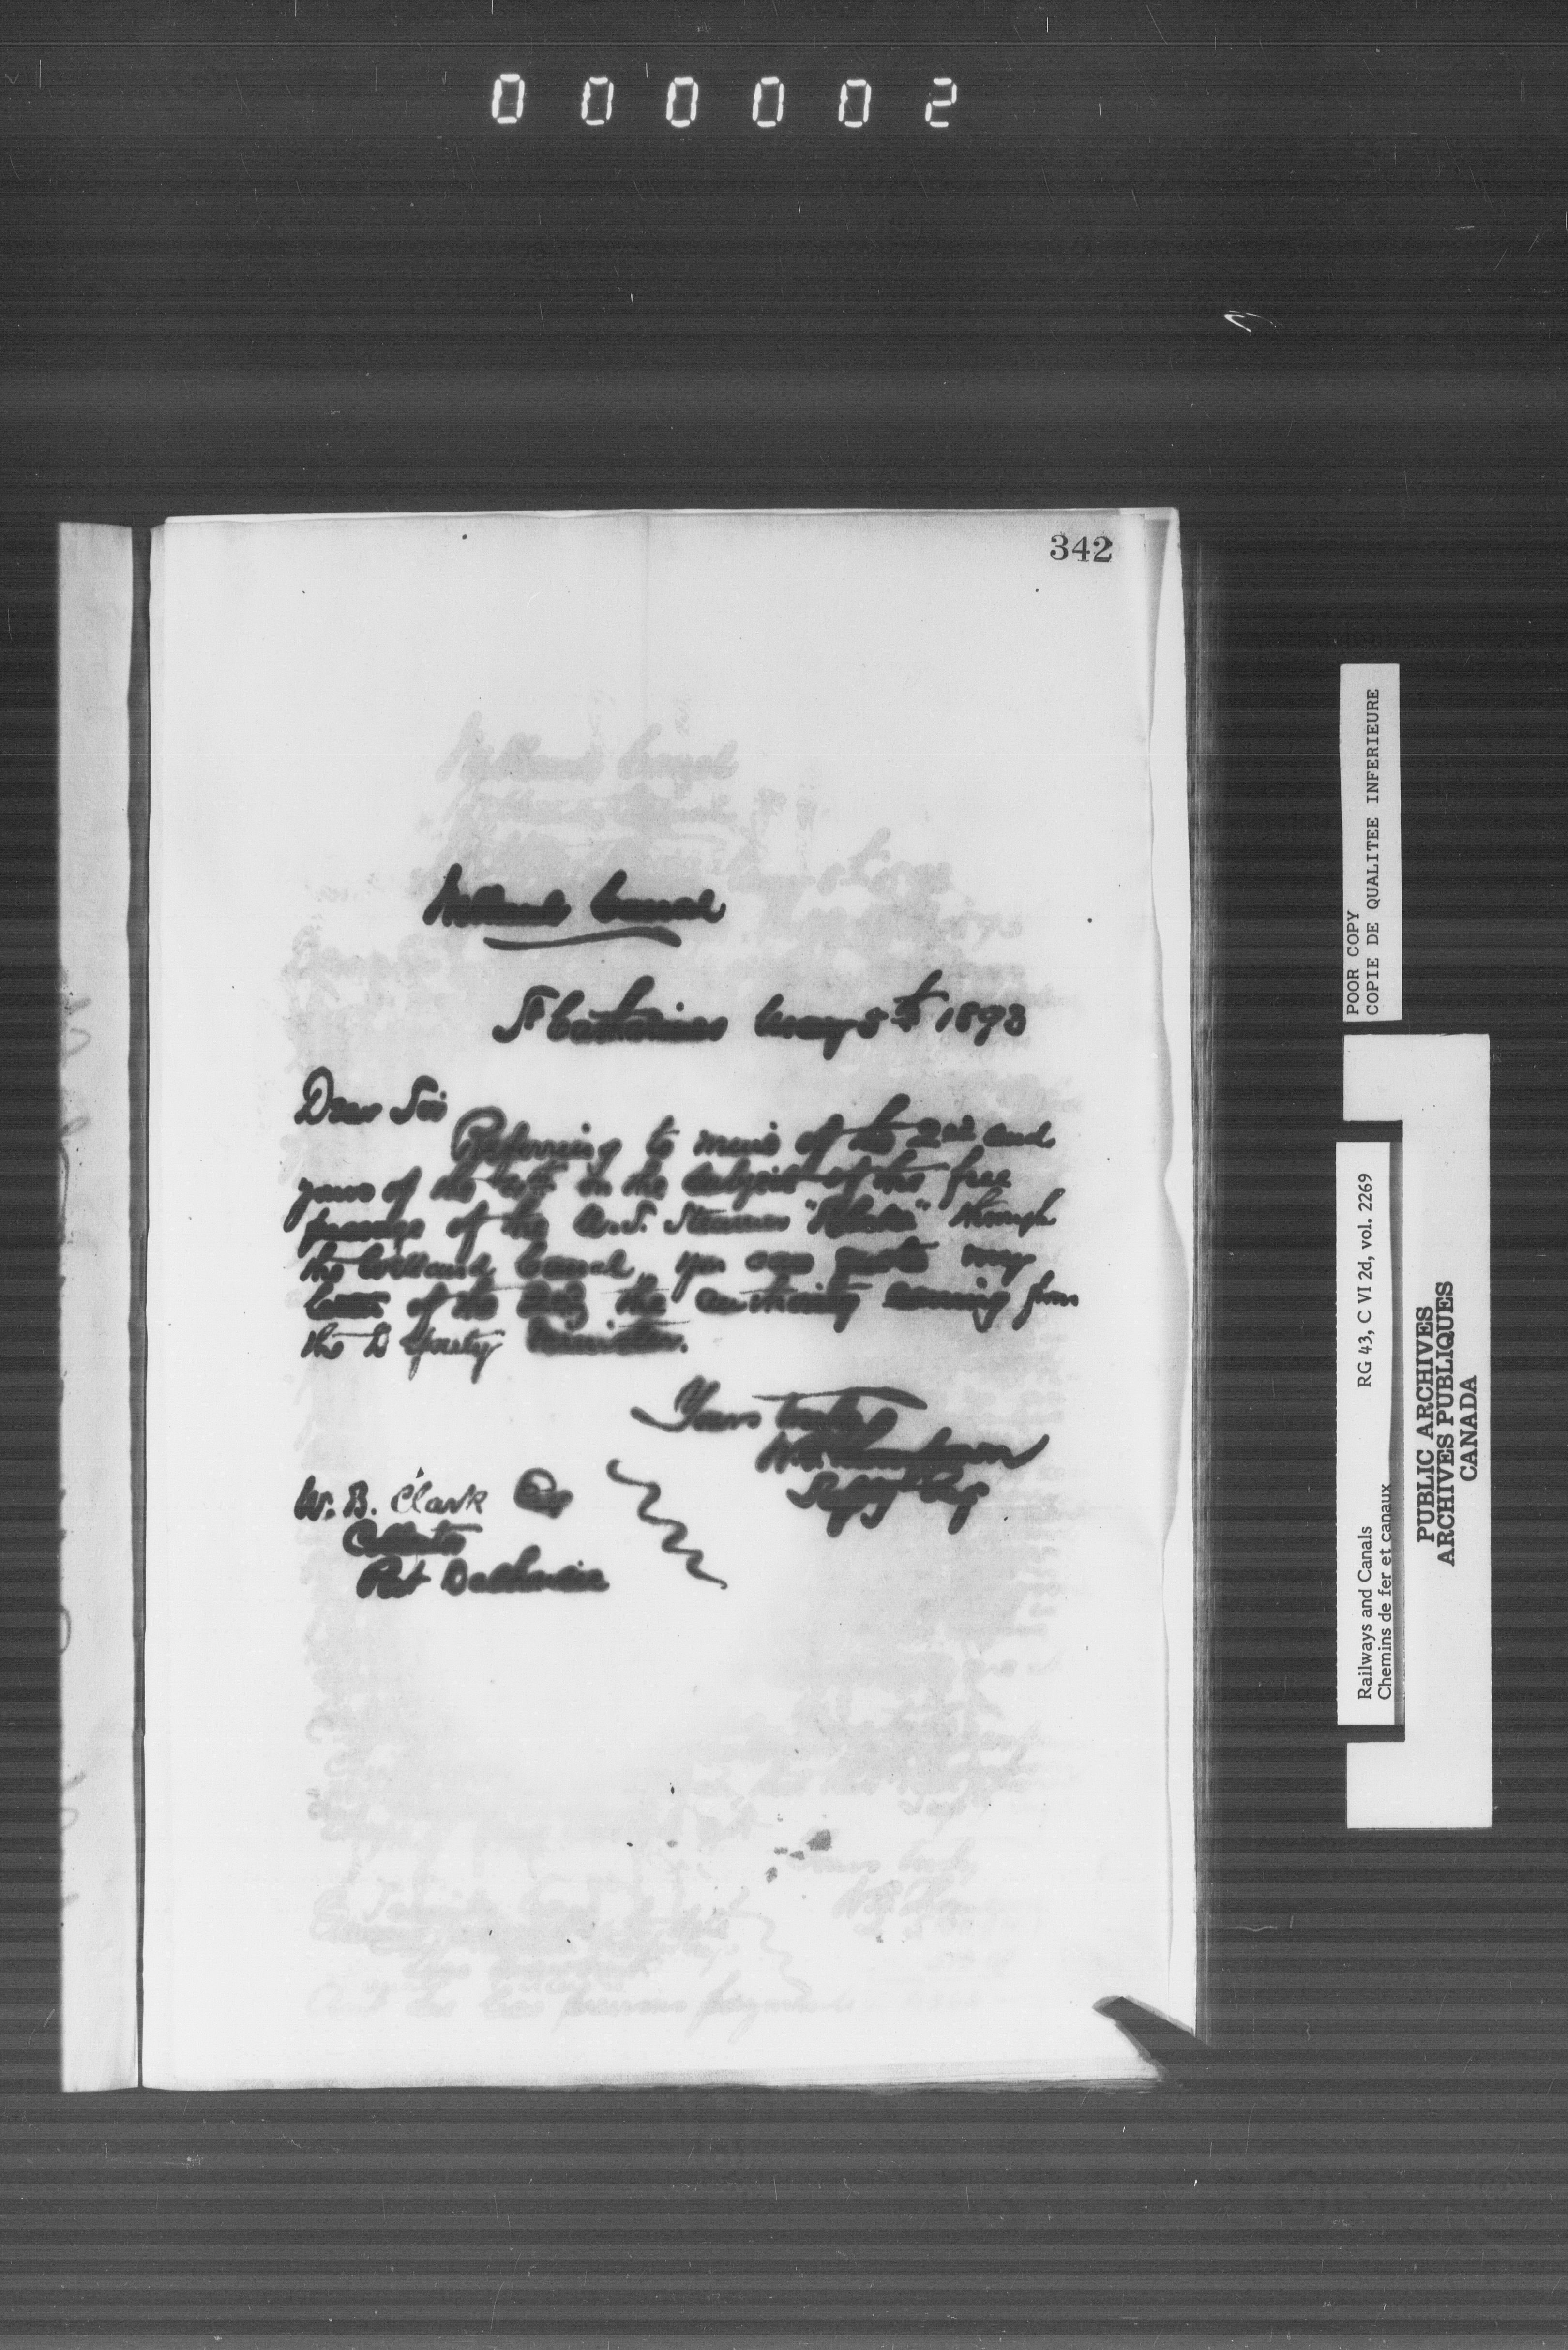 000002
342
Welland Canal
St Catharines May 5th 1893
Dear Sir
Referring to mine of the 2nd and
yours of the 4th on the subject of the free
passage of the U.S. Steamer " " through
the Welland Canal, you can quote my
letter of the 2nd the authority coming from
the Deputy Minister.
Yours truly
W.G. Thompson
Supg Eng
W. B. Clark Esq
Collector
Port Dalhousie
POOR COPY
COPIE DE QUALITEE INFERIEURE
Railways and Canals RG 43, C VI 2d, vol. 2269
Chemins de fer et canaux
PUBLIC ARCHIVES
ARCHIVES PUBLIQUES
CANADA